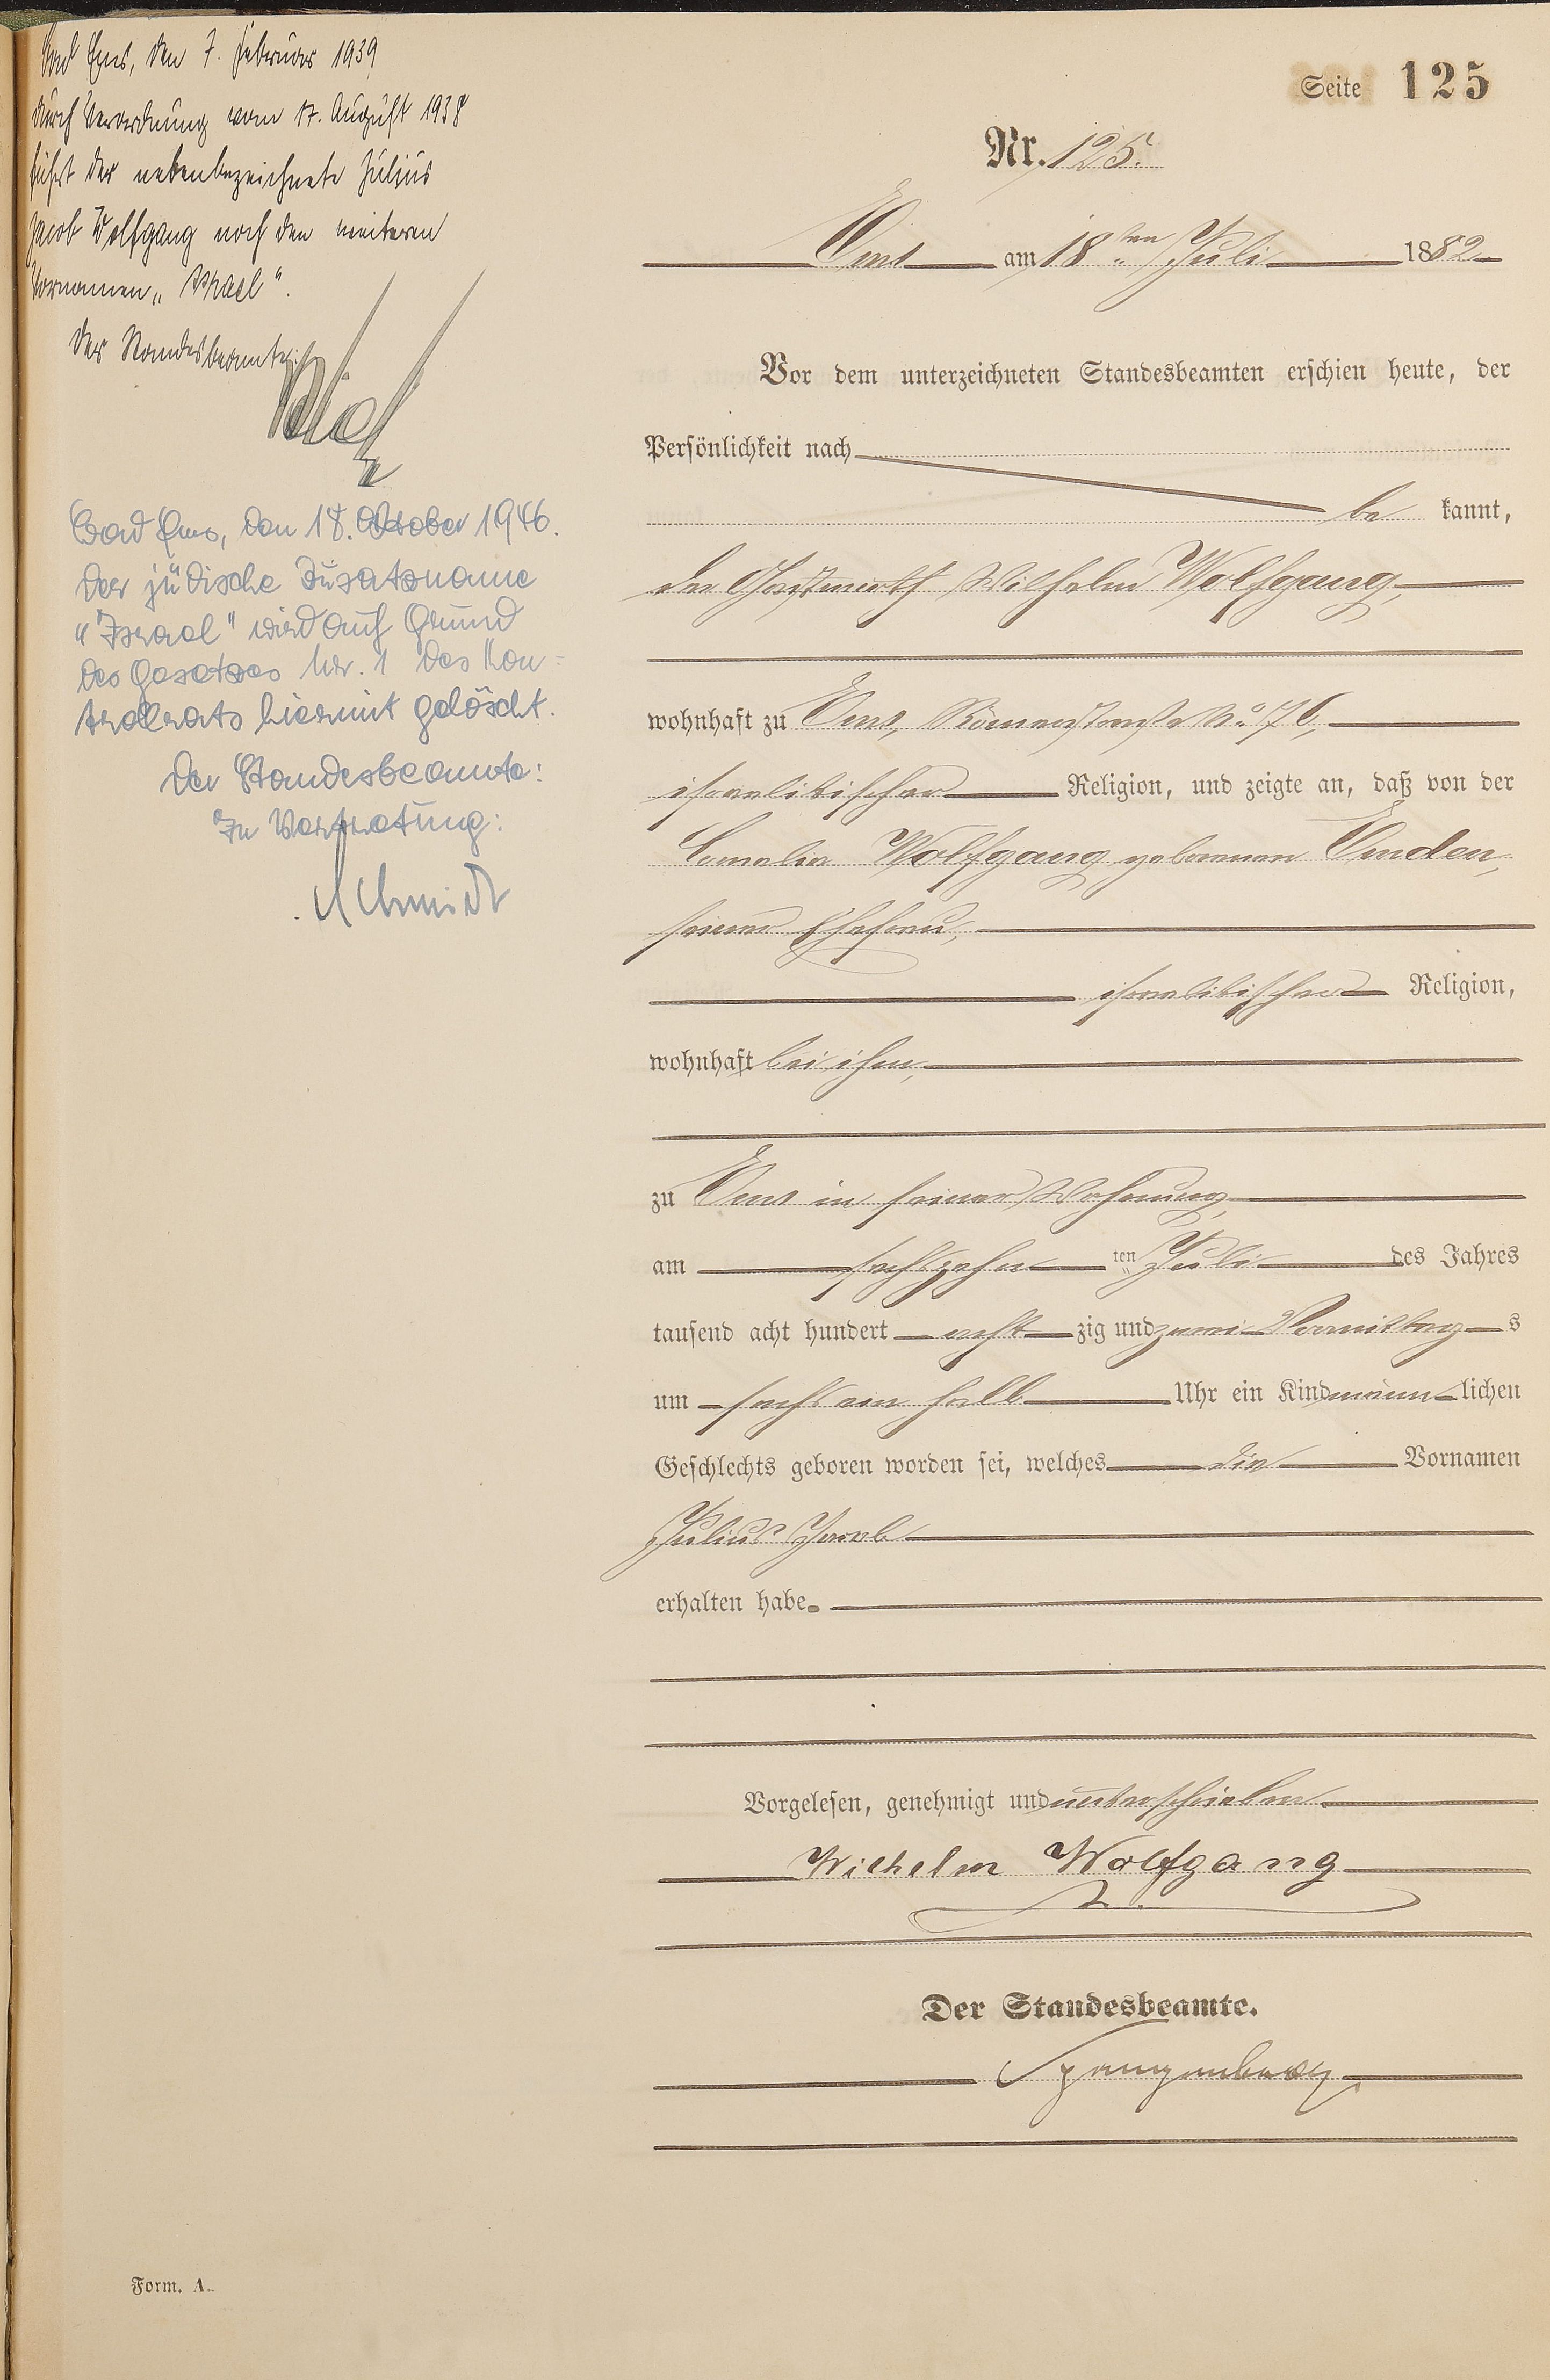 Bad Ems, den 7. Februar 1939
Durch Verordnung vom 17. August 1938
führt der nebenbezeichnete Julius
Jacob Wolfgang noch den weiteren
Vornamen „Israel".
Der Standesbeamte:
Bad Ems, den 18. Oktober 1946.
Der jüdische Zusatzname
"Israel" wird auf Grund
des Gesetzes Nr. 1 des Kon=
trollrats hiermit gelöscht.
Der Standesbeamte:
In Vertretung:
Schmidt
Seite 125
Nr. 125.
Ems am 18ten Juli 1882
Vor dem unterzeichneten Standesbeamten erschien heute, der
Persönlichkeit nach
be kannt,
der Gastwirth Wilhelm Wolfgang,
wohnhaft zu Ems, Römerstraße No. 76,
israelitischer Religion, und zeigte an, daß von der
Wolfgang geborenen Emden,
seiner Ehefrau,
israelitischer Religion,
wohnhaft bei ihm,
zu Ems in seiner Wohnung,
am sechszehn ten Juli des Jahres
tausend acht hundert acht zig und zwei Vormittag s
um sechs ein halb Uhr ein Kind männ lichen
Geschlechts geboren worden sei, welches die Vornamen
Julius Jacob
erhalten habe.
Vorgelesen, genehmigt und unterschrieben
Wilhelm Wolfgang
Der Standesbeamte.
Spangenberg
Form. A.